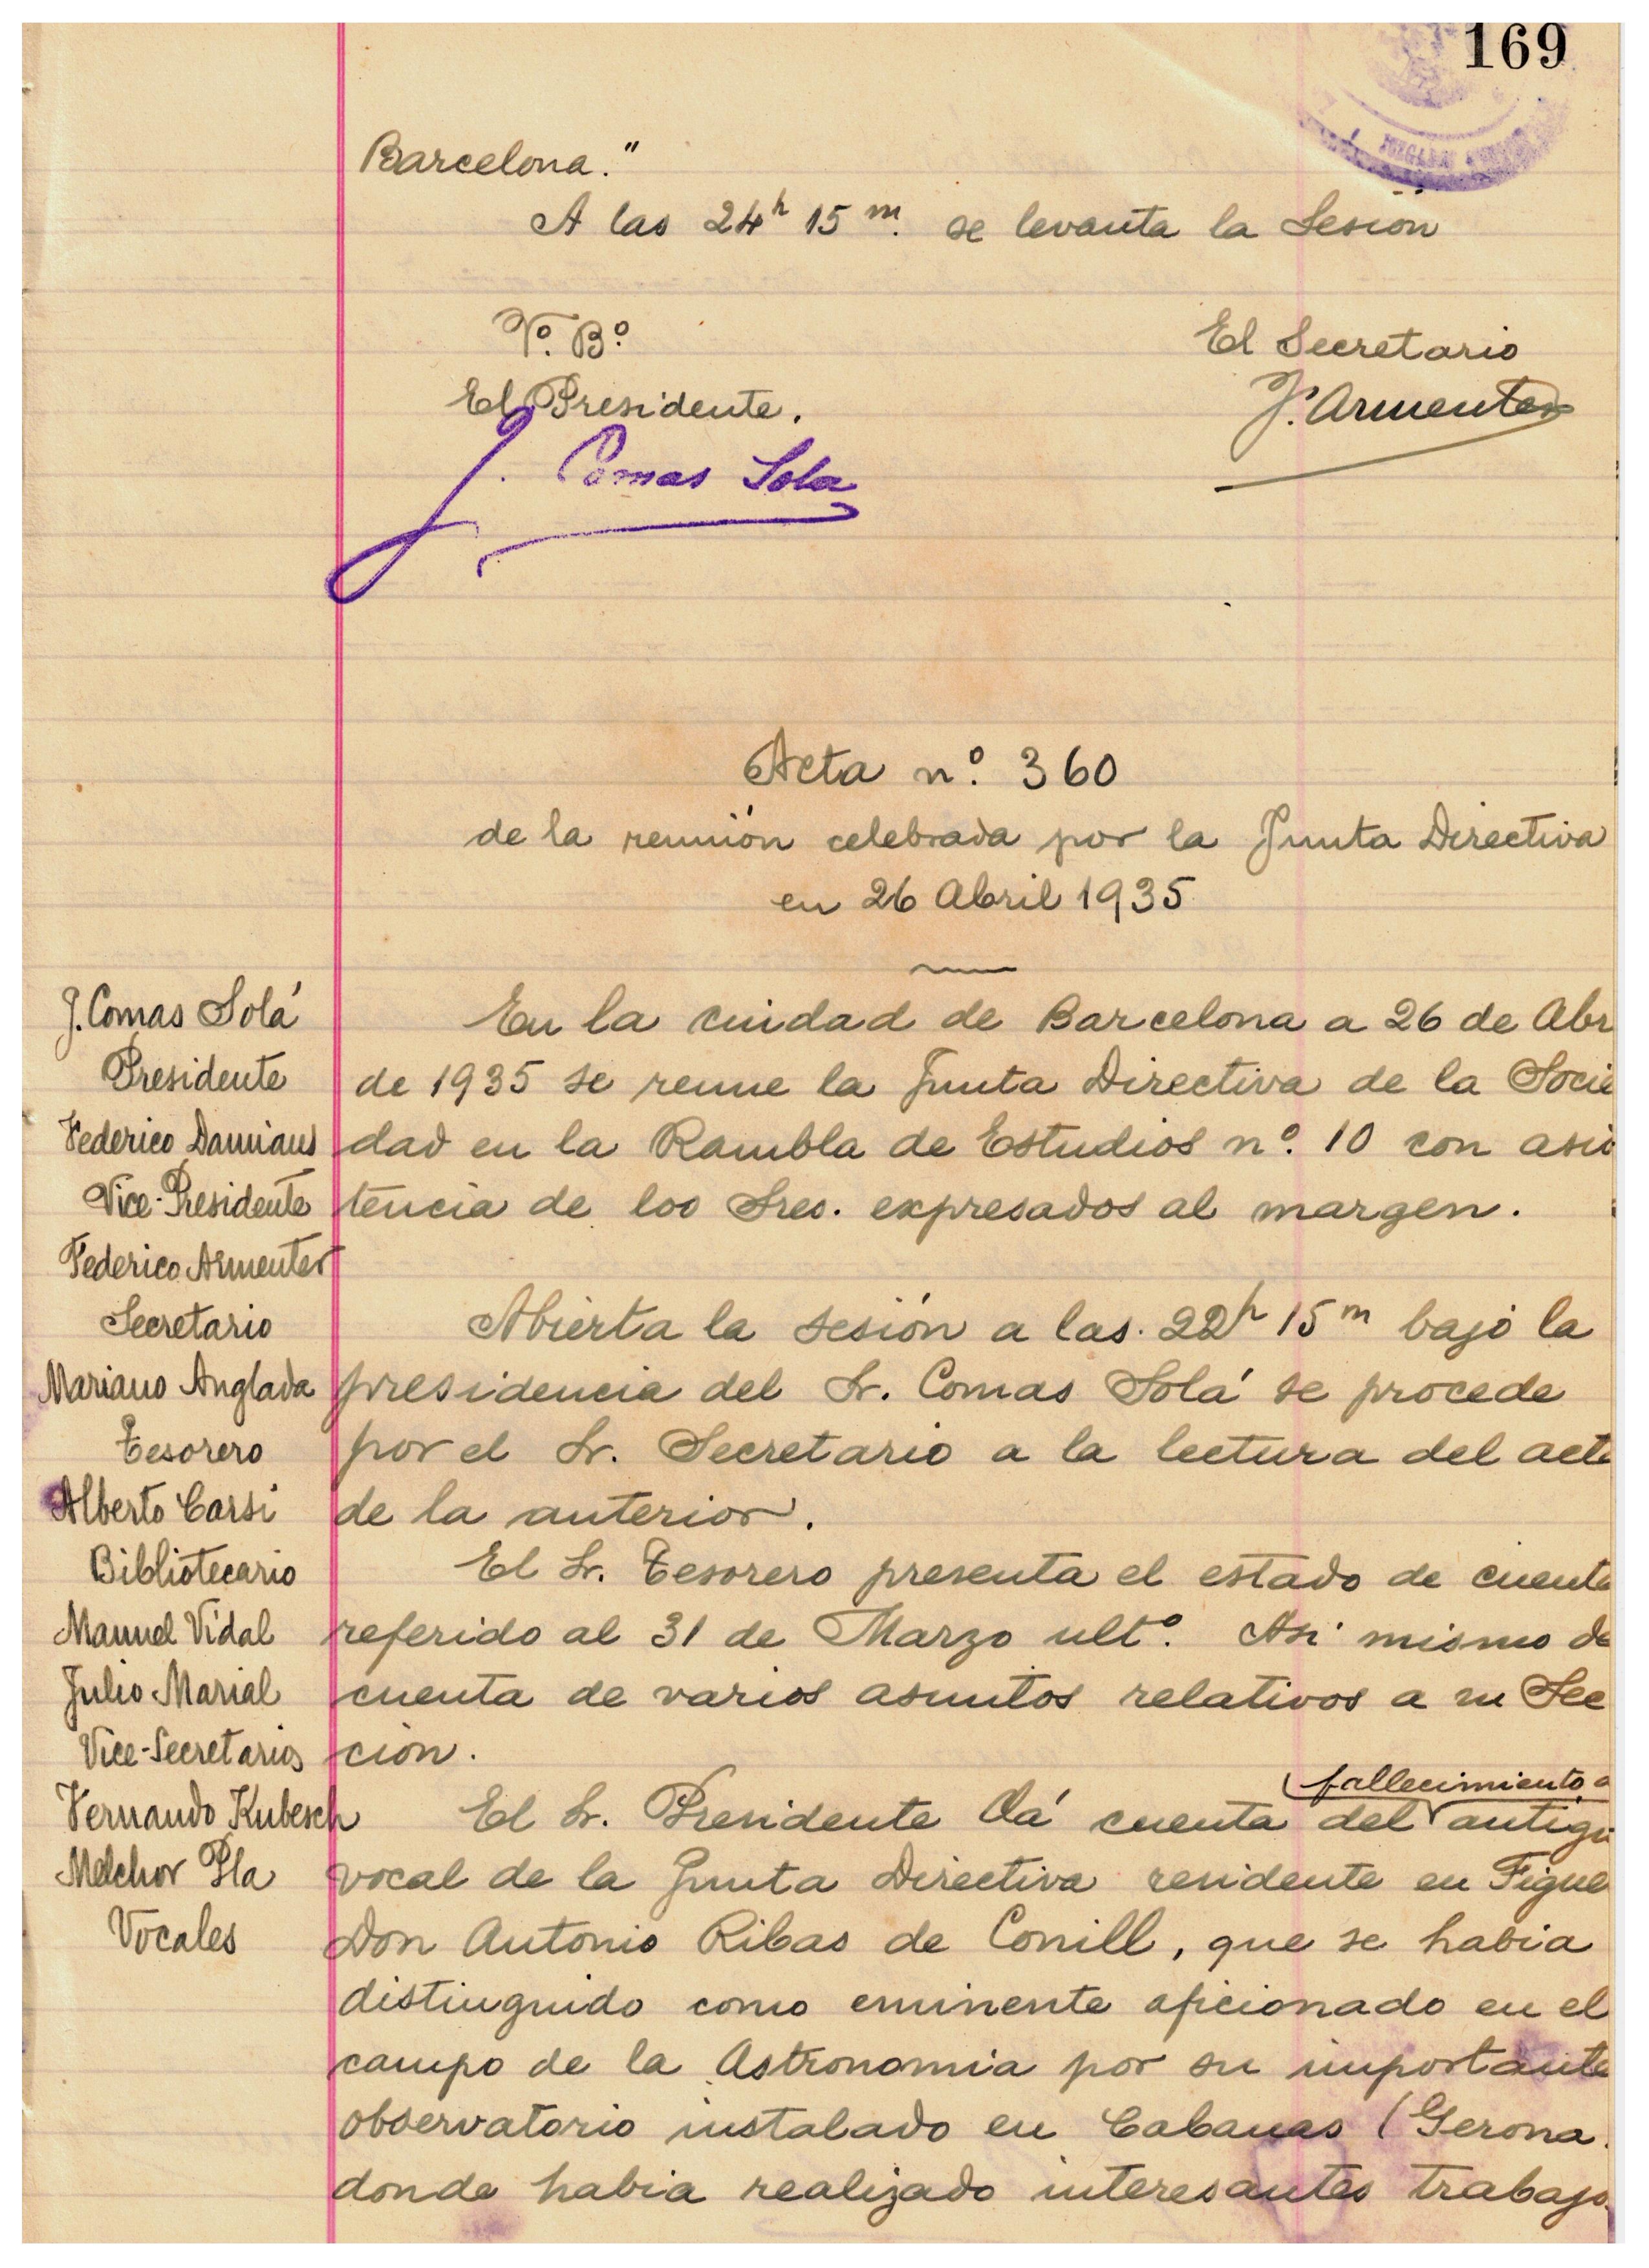 169
Barcelona."
A las 24h 15m. se levanta la Sesión
Vº. Bº
El Secretario
El Presidente.
F. Armenter
J. Comas Sola
Acta nº. 360
de la reunión celebrada por la Junta Directiva
en 26 Abril 1935
J. Comas Solá
Presidente
Federico Damians
Vice-Presidente
Federico Armenter
Secretario
Mariano Anglada
Tesorero
Alberto Carsi
Bibliotecario
Manuel Vidal
Julio Marial
Vice-Secretarios
Fernando Kubesch
Melchor Pla
Vocales
En la ciudad de Barcelona a 26 de Abr
de 1935 se reune la Junta Directiva de la Socie
dad en la Rambla de Estudios nº. 10 con asis
tencia de los Sres. expresados al margen.
Abierta la sesión a las 22h 15m bajo la
presidencia del Sr. Comas Solá se procede
por el Sr. Secretario a la lectura del acta
de la anterior.
El Sr. Tesorero presenta el estado de cuenta
referido al 31 de Marzo ultº. Asi mismo da
cuenta de varios asuntos relativos a su Sec
cion.
fallecimiento
El Sr. Presidente dá cuenta del antigu
vocal de la Junta Directiva residente en Figue
Don Antonio Ribas de Conill, que se habia
distinguido como eminente aficionado en el
campo de la Astronomia por su importante
observatorio instalado en Cabanas (Gerona
donde habia realizado interesantes trabajo